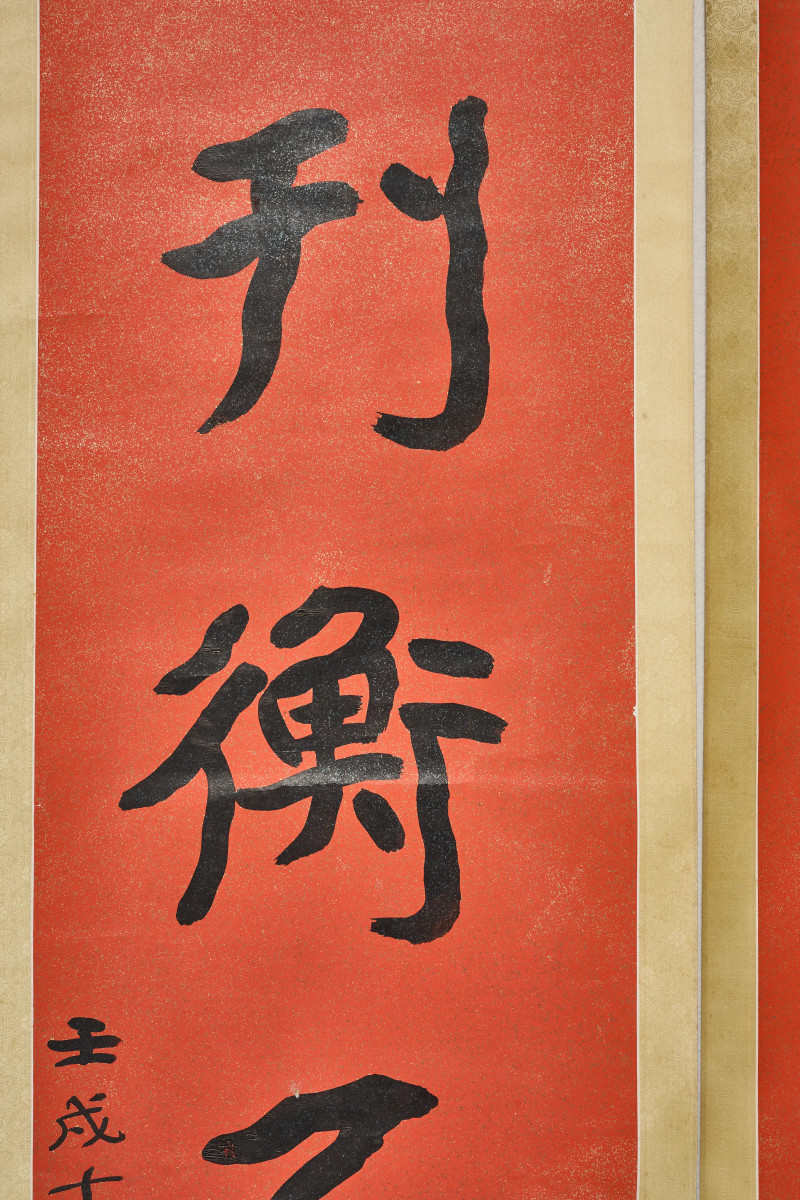 刊衡
壬戌十